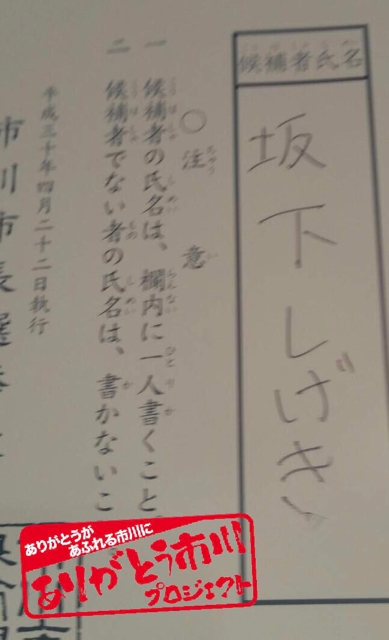 候補者氏名
坂下しげき
○注意
一 候補者の氏名は、欄内に一人書くこと。
二 候補者でない者の氏名は、書かないこ
平成三十年四月二十二日執行
市川市長選挙
ありがとうが
あふれる市川に
ありがとう市川
プロジェクト